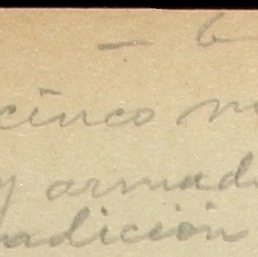 — 6
cinco
y armad
adición